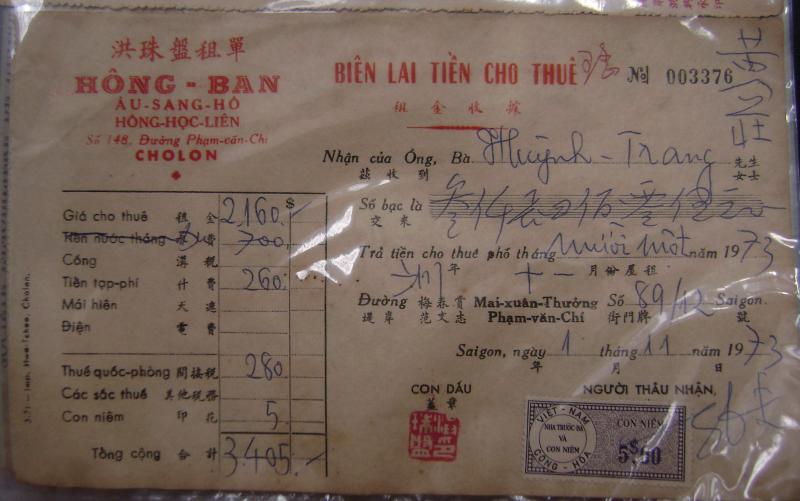 洪珠盤租單
HỒNG - BAN
ÂU-SANG-HÔ
HỒNG-HỌC-LIÊN
Số 148, Đường Phạm-văn-Chí
CHOLON
BIÊN LAI TIỀN CHO THUÊ
租金收據
№ 003376
Nhận của Ông, Bà Huỳnh-Trang 先生 女士
茲收到
Số bạc là 叁仟 佰零伍元
交來
Trả tiền cho thuê phố tháng Mười một năm 1973
年 十一 月份屋租
Đường 梅春賞 Mai-xuân-Thưởng Số 89/12 Saigon.
堤岸 范文志 Phạm-văn-Chí 街門牌 號
Saigon, ngày 1 tháng 11 năm 1973
月 日
CON DẤU
蓋章
NGƯỜI THÂU NHẬN,
$
Giá cho thuê 租金 2,160.
Tiền nước tháng 費 700.
Cống 溝稅
Tiền tạp-phí 什費 260.
Mái hiên 天遮
Điện 電費
Thuế quốc-phòng 間接稅 280.
Các sắc thuế 其他稅務
Con niêm 印花 5.
Tổng cộng 合計 3.405.
VIỆT-NAM
CỘNG-HÒA
NHA TRƯỚC BẠ
VÀ
CON NIÊM
CON NIÊM
5$00